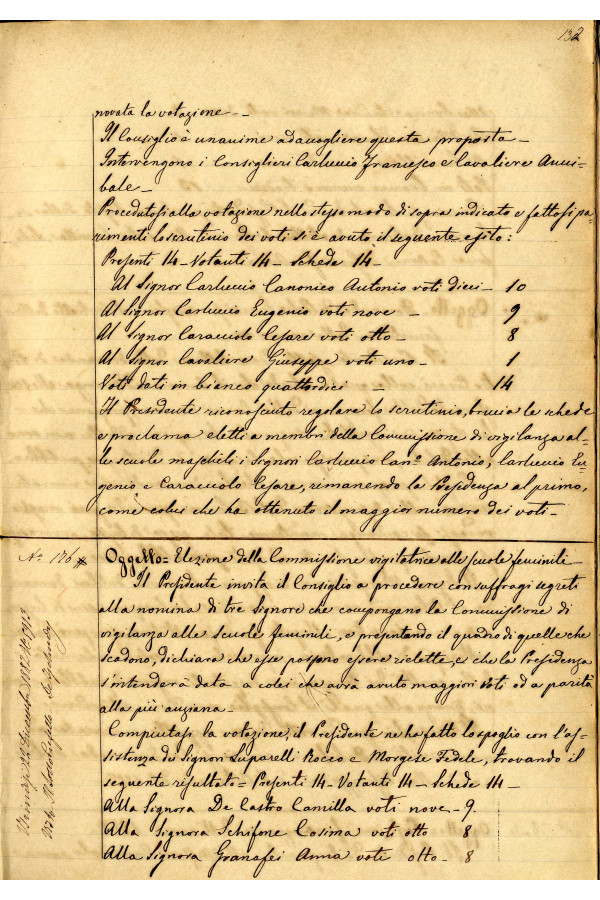 132
novata la votazione - -
Il Consiglio è unanime ad accogliere questa proposta -
Intervengono i Consiglieri Carluccio Francesco e Cavaliere Anni-
bale -
Procedutosi alla votazione nello stesso modo di sopra indicato e fattosi pa-
rimenti lo scrutinio dei voti si è avuto il seguente esito:
Presenti 14 - Votanti 14 - Schede 14 -
Al Signor Carluccio Canonico Antonio voti dieci - 10
Al Signor Carluccio Eugenio voti nove - 9
Al Signor Caracciolo Cesare voti otto - 8
Al Signor Cavaliere Giuseppe voti uno - 1
Voti dati in bianco quattordici - 14
Il Presidente riconosciuto regolare lo scrutinio, brucia le schede
e proclama eletti a membri della Commissione di vigilanza al-
le scuole maschili i Signori Carluccio Can.º Antonio, Carluccio Eu-
genio e Caracciolo Cesare, rimanendo la Presidenza al primo,
come colui che ha ottenuto il maggior numero dei voti -
Nº 176
Oggetto = Elezione della Commissione vigilatrice alle scuole feminili -
Il Presidente invita il Consiglio a procedere con suffragi segreti
alla nomina di tre Signore che compongano la Commissione di
vigilanza alle scuole feminili, e presentando il quadro di quelle che
scadono, dichiara che esse possono essere rielette, e che la Presidenza
s'intenderà data a colei che avrà avuto maggiori voti od a parità
alla più anziana -
Compiutasi la votazione, il Presidente ne ha fatto lo spoglio con l'as-
sistenza dei Signori Luparelli Rocco e Morgese Fedele, trovando il
seguente risultato = Presenti 14 - Votanti 14 - Schede 14 -
Alla Signora De Castro Camilla voti nove - 9.
Alla Signora Schifone Cosima voti otto 8
Alla Signora Granafei Anna voti otto - 8